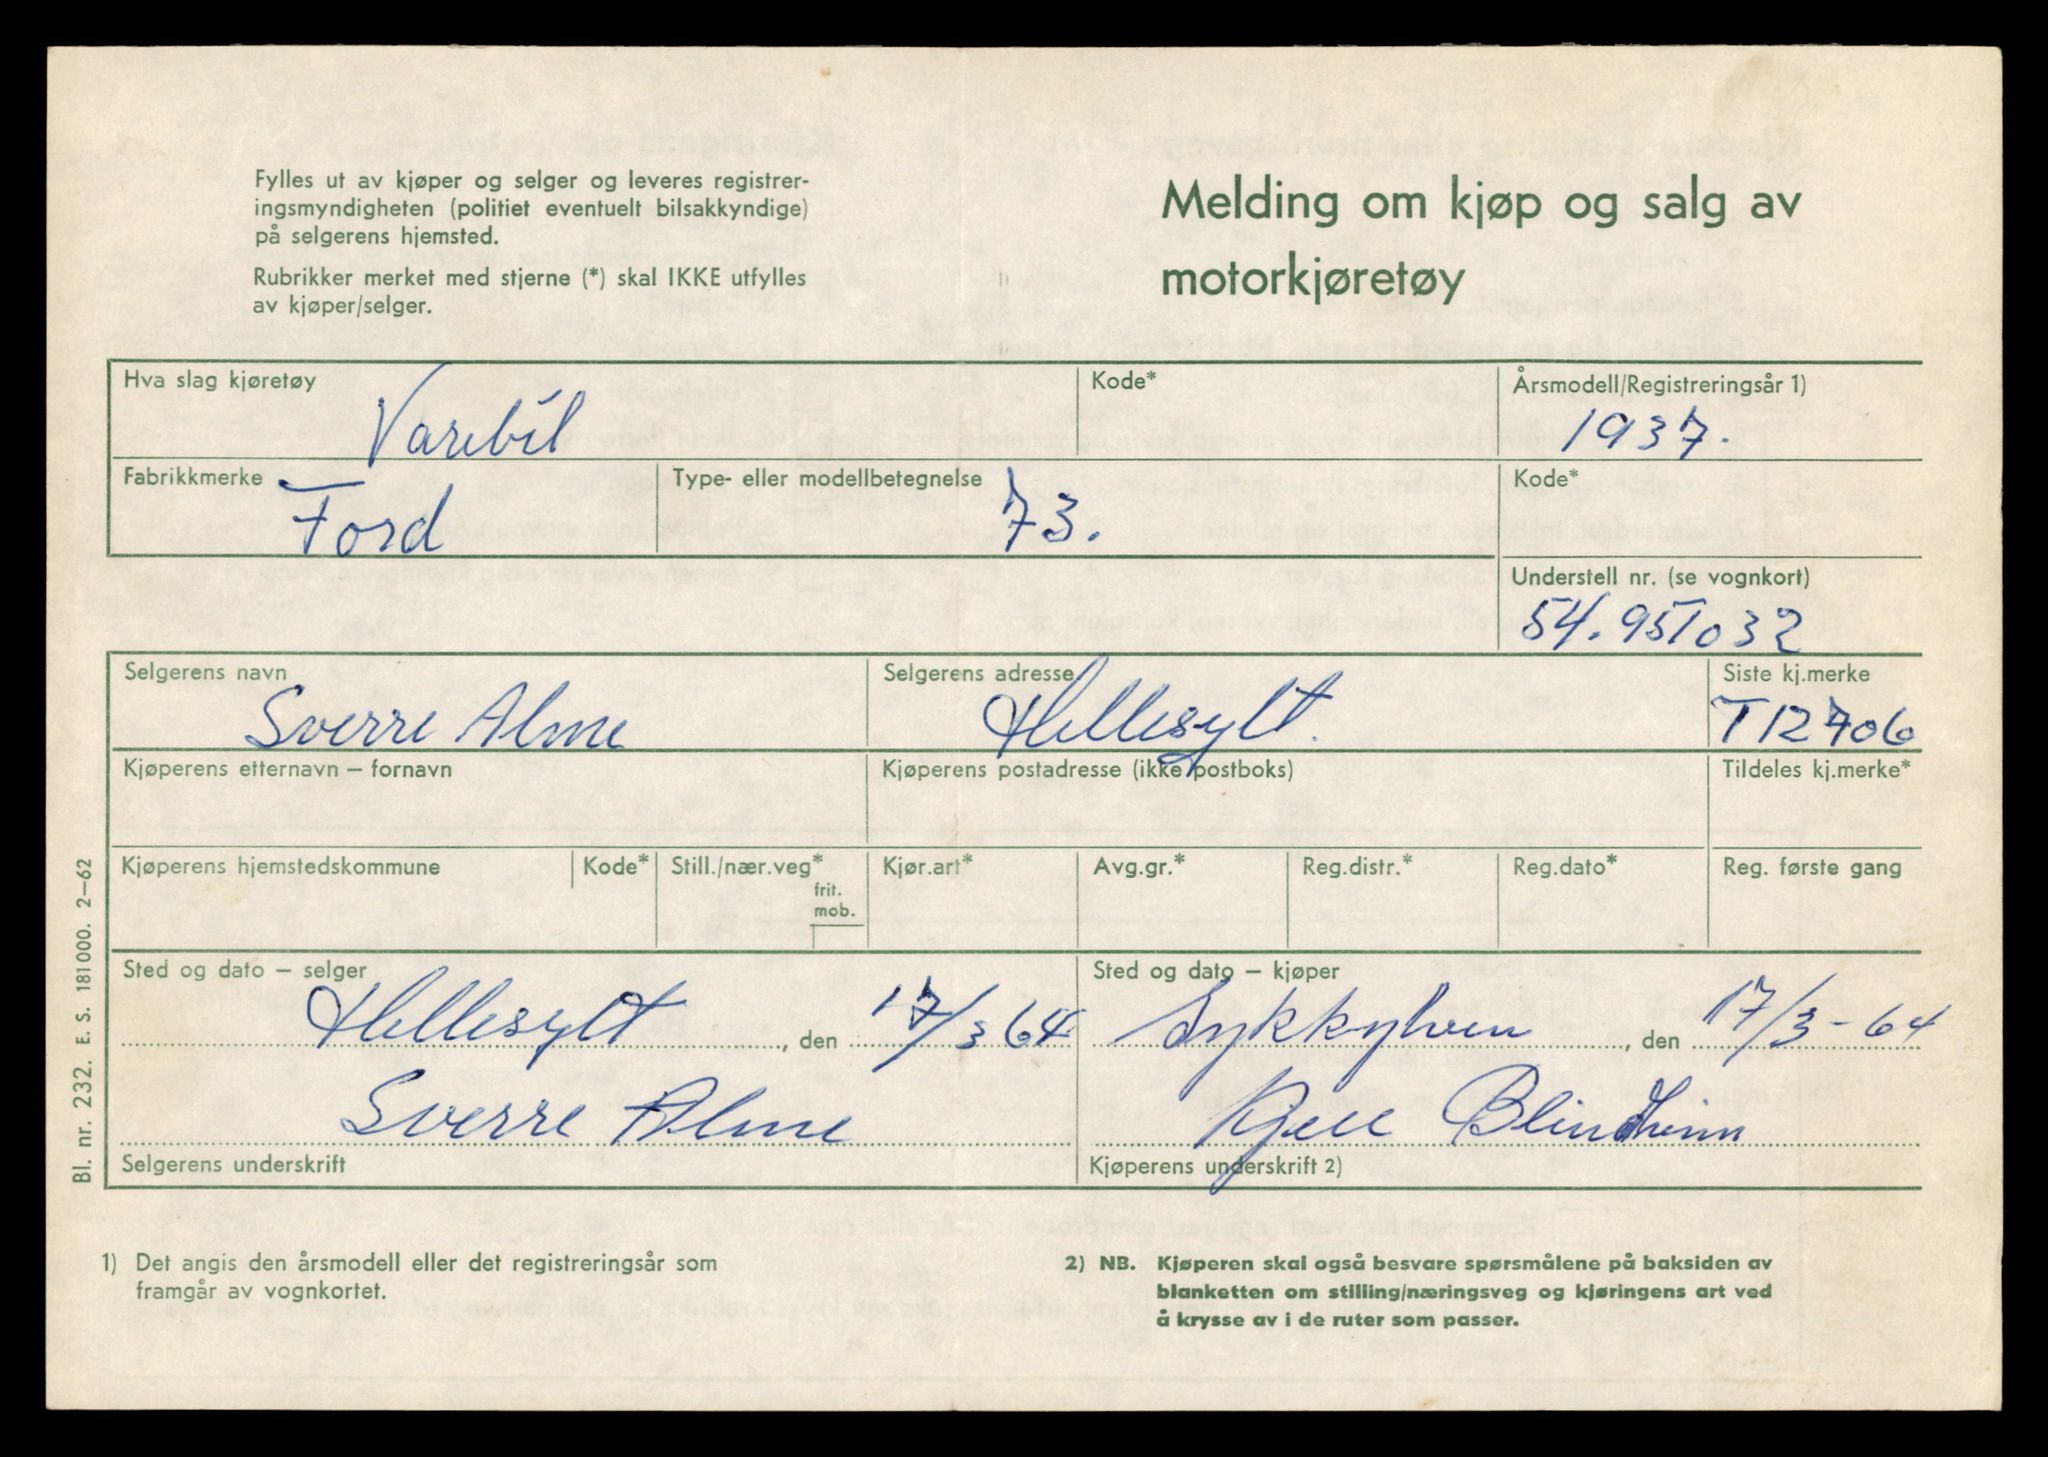 Fylles ut av kjøper og selger og leveres registrer-
ingsmyndigheten (politiet eventuelt bilsakkyndige)
på selgerens hjemsted.
Rubrikker merket med stjerne (*) skal IKKE utfylles
av kjøper/selger.
Melding om kjøp og salg av
motorkjøretøy
Hva slag kjøretøy
Varebil
Kode*
Årsmodell/Registreringsår 1)
1937.
Fabrikkmerke
Ford
Type- eller modellbetegnelse
73.
Kode*
Understell nr. (se vognkort)
54.951032
Selgerens navn
Sverre Alme
Selgerens adresse
Hellesylt.
Siste kj.merke
T12706
Kjøperens etternavn – fornavn
Kjøperens postadresse (ikke postboks)
Tildeles kj.merke*
Kjøperens hjemstedskommune
Kode*
Still./nær.veg*
frit.
mob.
Kjør.art*
Avg.gr.*
Reg.distr.*
Reg.dato*
Reg. første gang
Sted og dato – selger
Hellesylt, den 17/3 64
Sverre Alme
Selgerens underskrift
Sted og dato – kjøper
Sykkylven, den 17/3-64
Kjell Blindheim
Kjøperens underskrift 2)
Bl. nr. 232. E. S. 181000. 2–62
1) Det angis den årsmodell eller det registreringsår som
framgår av vognkortet.
2) NB. Kjøperen skal også besvare spørsmålene på baksiden av
blanketten om stilling/næringsveg og kjøringens art ved
å krysse av i de ruter som passer.